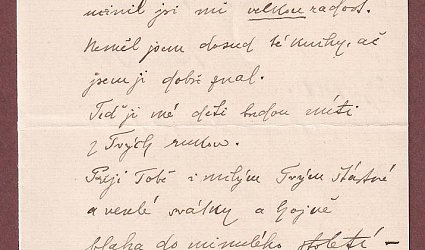 učinil jsi mi velkou radost.
Neměl jsem dosud té knihy, ač
jsem ji dobře znal.
Teď ji mé děti budou míti
z Tvých rukou.
Přeji Tobě i milým Tvým šťastné
a veselé svátky a hojně
blaha do minulého století —